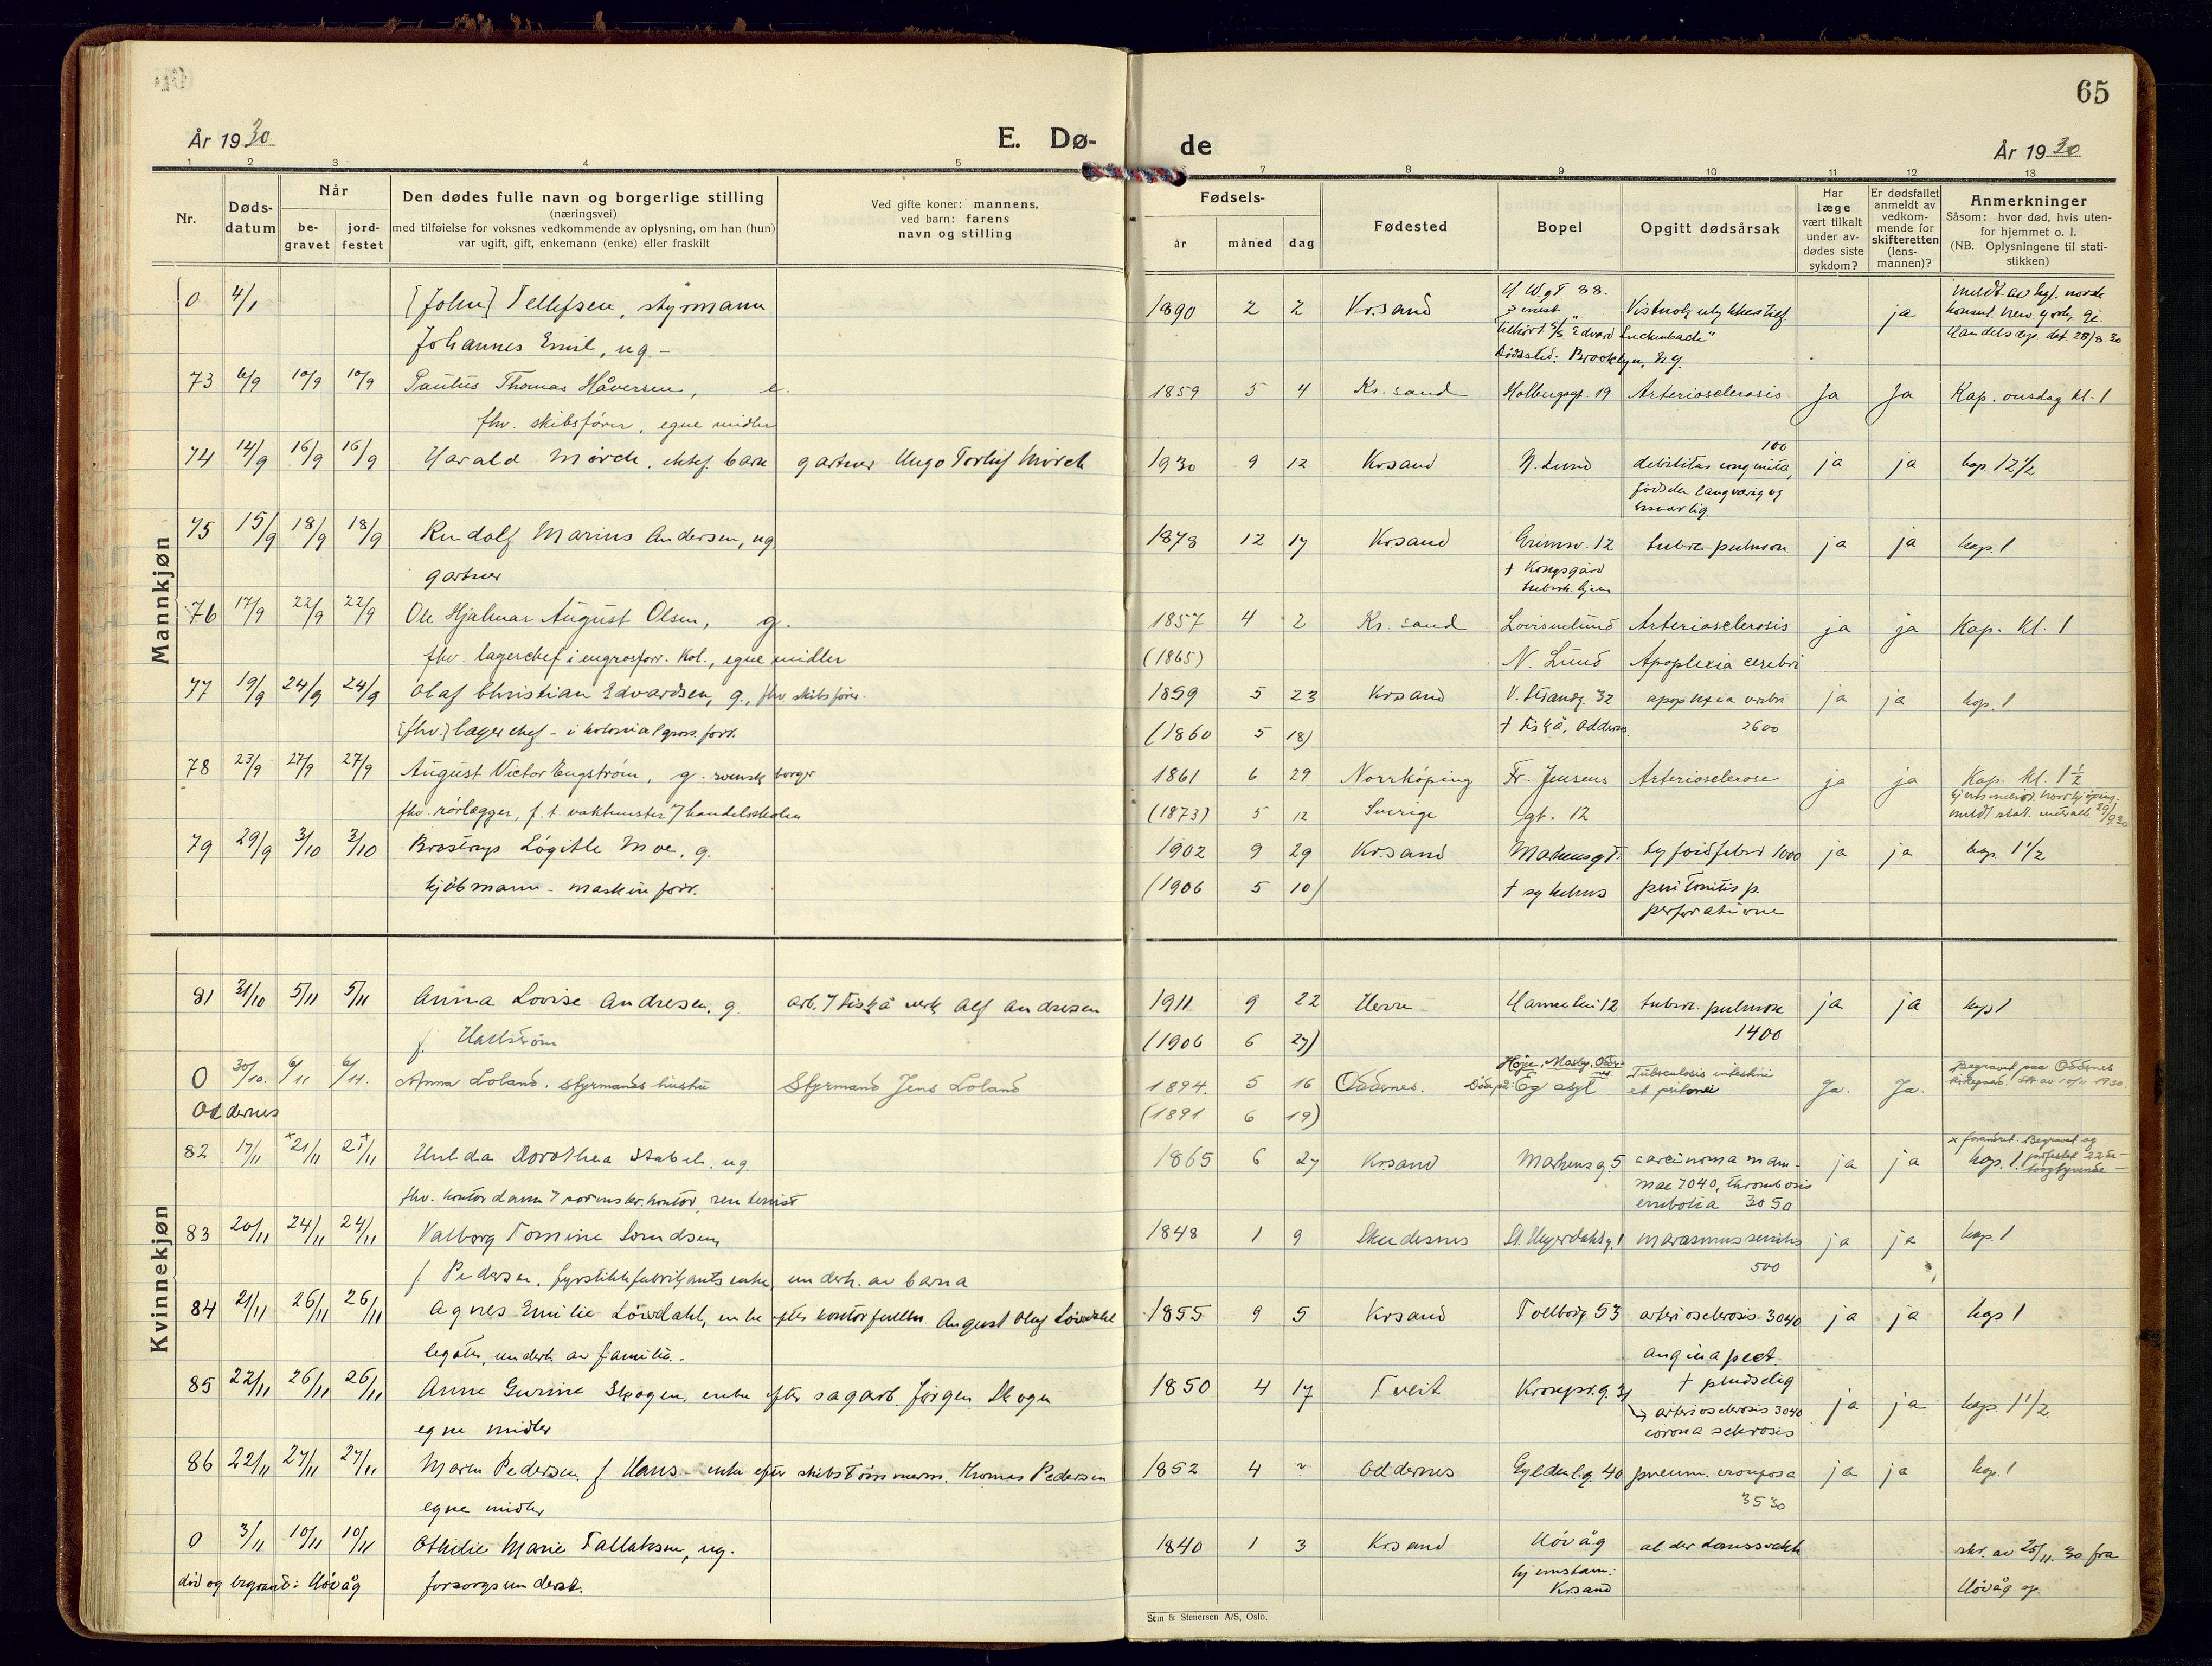 65
År 1930 E. Dø- de År 1930
1 2 3 4 5 7 8 9 10 11 12 13
Nr.
Døds-
datum
Når
be-
gravet
jord-
festet
Den dødes fulle navn og borgerlige stilling
(næringsvei)
med tilføielse for voksnes vedkommende av oplysning, om han (hun)
var ugift, gift, enkemann (enke) eller fraskilt
Ved gifte koner: mannens,
ved barn: farens
navn og stilling
Fødsels-
år
måned
dag
Fødested
Bopel
Opgitt dødsårsak
Har
læge
vært tilkalt
under av-
dødes siste
sykdom?
Er dødsfallet
anmeldt av
vedkom-
mende for
skifteretten
(lens-
mannen)?
Anmerkninger
Såsom: hvor død, hvis uten-
for hjemmet o. l.
(NB. Oplysningene til stati-
stikken)
Mannkjøn
0 4/1 [John] Tellefsen, styrmann 1890 2 2 Kr.sand H. W. gt. 38. ja
Johannes Emil, ug -
Dødssted: Brooklyn, N.Y.
73 6/9 10/9 10/9 Paulus Thomas Håversen, e. 1859 5 4 Kr. sand Holbergsgt. 19 Arteriosclerosis Ja Ja Kap. onsdag kl. 1
fhv. skibsfører, egne midler
74 14/9 16/9 16/9 Harald Mörch, ektef. barn gartner Hugo Torleif Mörch 1930 9 12 Krsand N. Lund debilitas congenita, 100 ja ja kap. 12 1/2
fødselen langvarig og
besværlig
75 15/9 18/9 18/9 Rudolf Marius Andersen, ug 1878 12 17 Krsand Grimsv. 12 tuberc. pulmon ja ja kap. 1
gartner † Kongsgård
tuberk. hjem
76 17/9 22/9 22/9 Ole Hjalmar August Olsen, g. 1857 4 2 Kr. sand Lovisenlund Arteriosclerosis ja ja Kap. kl. 1
fhv. lagerchef i engrosforr. Kol., egne midler (1865) N. Lund Apoplexia cerebri
77 19/9 24/9 24/9 Olaf Christian Edvardsen, g., fhv. skibsfører. 1859 5 23 Krsand V. Strandg. 32 apoplexia cerebri ja ja kap. 1
[fhv.] lagerchef - i kolonialgross. forr. (1860 5 18) † Fiskå, Oddernes. 2600
78 23/9 27/9 27/9 August Victor Engström, g. svensk borger 1861 6 29 Norrköping Fr. Jensens Arteriosclerose ja ja Kap. kl. 1 1/2
fhv. rörlegger, f. t. vaktmester v/ handelsskolen (1873) 5 12 Sverige gt. 12
79 29/9 3/10 3/10 Moe, g. 1902 9 29 Kr.sand Markensgt. tyfoidfeber 1000 ja ja kap. 1 1/2
kjöbmann - maskinforr. (1906 5 10) † sykehus peritonitis p.
perforatione
Kvinnekjøn
81 31/10 5/11 5/11 Anna Lovise Andresen, g. arb. v/ Fiskå verk Alf Andresen 1911 9 22 Herre 12 tuberc. pulmon ja ja kap 1
f. Hallström (1906 6 27) 1400
0 30/10. 6/11 6/11. Anna Loland, styrmands hustru Styrmand Jens Loland 1894. 5 16 Oddernes. Död på: Eg asyl Tuberculosis intestini Ja. Ja. Begravet paa Oddernes
Oddernes (1891 6 19) et peritonei
82 17/11 × 21/11 21/11 × Hulda Dorothea Stabel, ug 1865 6 27 Krsand Markensg 5 carcinoma mam- ja ja kap. 1.
fhv. kontordame v/ sorenskr. kontor, rentenist mae 7040, thrombosis
embolia 3050
83 20/11 24/11 24/11 Valborg Tomine Svendsen, 1848 1 9 Skudesnes marasmus senilis ja ja kap. 1
f Pedersen, fyrstikkfabrikants enke, underh. av barna 500
84 21/11 26/11 26/11 Agnes Emilie Lövdahl, enke efter kontorfullm. August Olaf Lövdahl 1855 9 5 Krsand Tollbodg 53 arteriosclerosis 3040 ja ja kap 1
legater, underh. av familie. angina pect.
85 22/11 26/11 26/11 Anne Gurine Skogen, enke efter sagarb. Jörgen Skogen 1850 4 17 Tveit Kronpr.g. 31 † pludselig ja ja kap. 1 1/2
egne midler arteriosclerosis 3040
corona sclerosis
86 22/11 27/11 27/11 Maren Pedersen f Hans- enke efter skibstömmerm. Thomas Pedersen 1852 4 ? Oddernes Gyldenl.g. 40 pneum. crouposa ja ja kap. 1
egne midler 3530
0 3/11 10/11 10/11 Othilie Marie Tallaksen, ug. 1840 1 3 Krsand Hövåg alderdomssvakh skr. av 25/11 30 fra
död og begravet: Hövåg forsorgsunderst. hjemstavn: Hövåg sp.
Krsand
Sten & Stenersen A/S, Oslo.